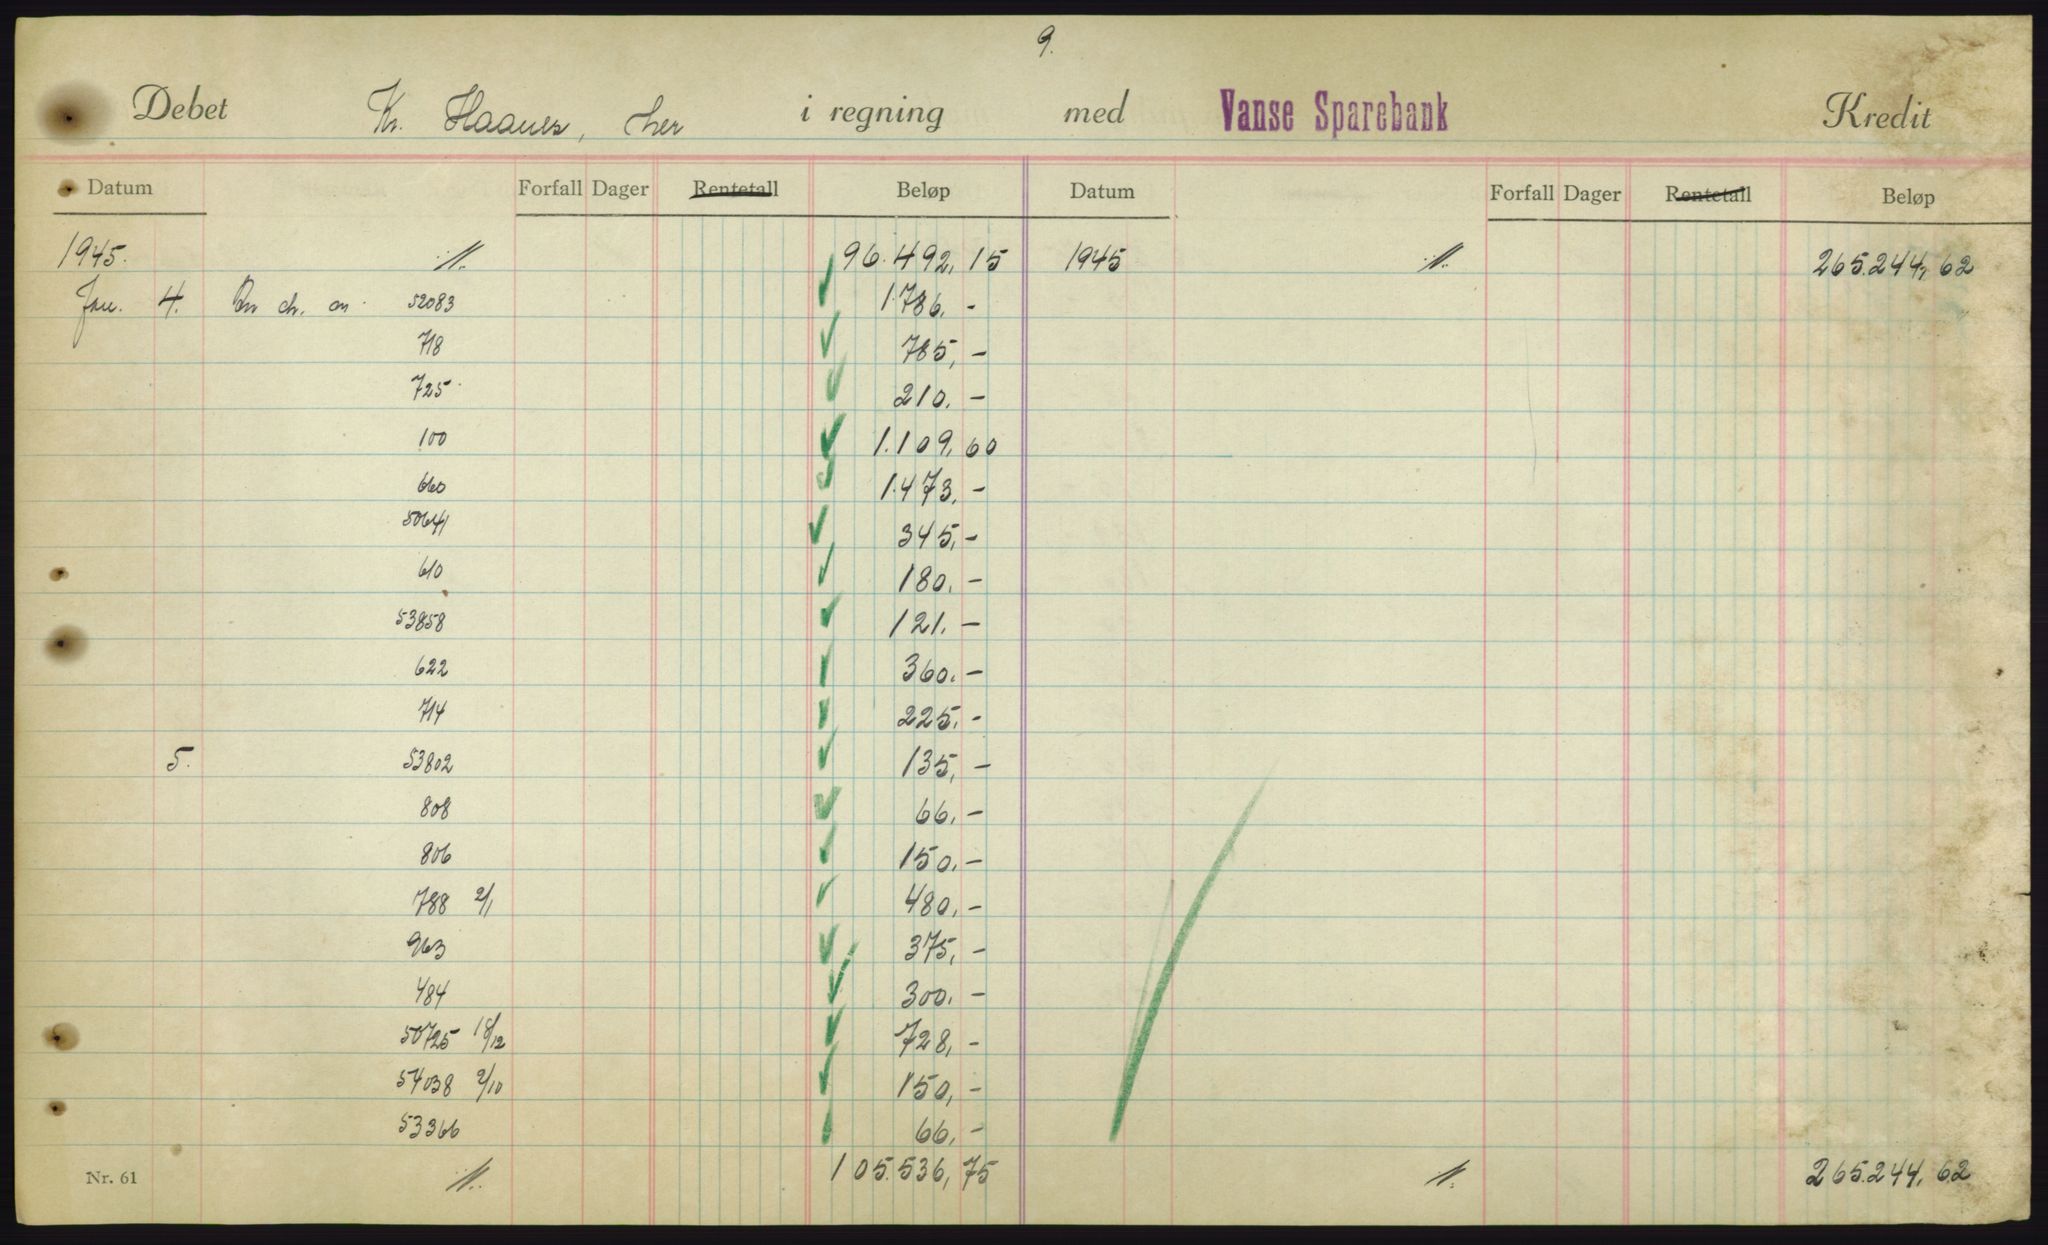 9.
Debet Kr. Haanes, her i regning med Vanse Sparebank Kredit
Datum Forfall Dager Rentetall Beløp Datum Forfall Dager Rentetall Beløp
1945. 96.492,15 1945 265.244,62
Jan. 4. 52083 1.786,-
718 785,-
725 210,-
100 1.109,60
660 1.473,-
50641 345,-
610 180,-
53858 121,-
622 360,-
714 225,-
5. 53802 135,-
808 66,-
806 150,-
788 2/1 480,-
963 375,-
484 300,-
50725 18/12 728,-
54038 2/10 150,-
53366 66,-
Nr. 61 105.536,75 265.244,62